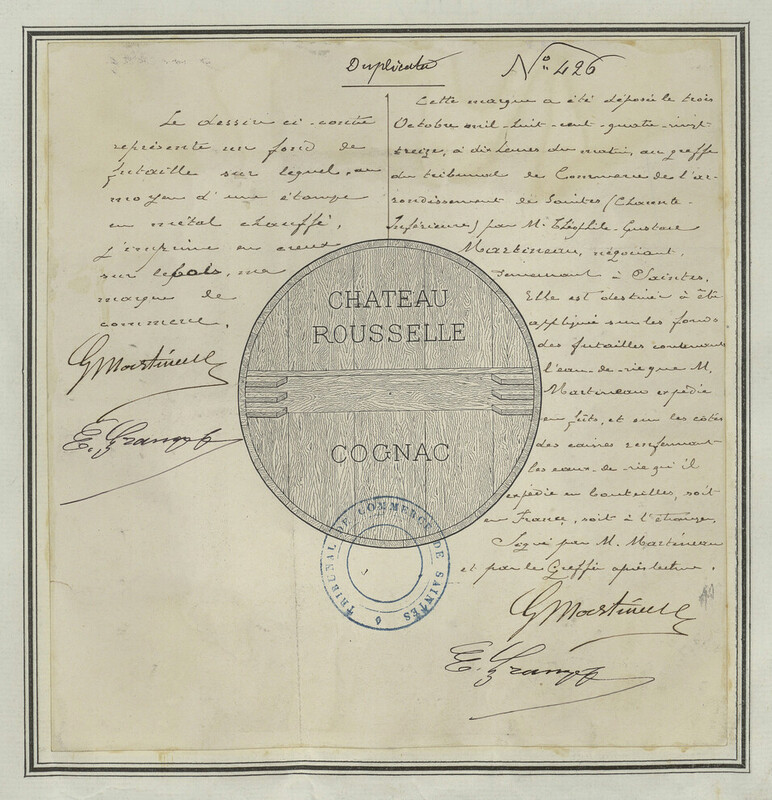 Duplicata
N° 426
Le dessin ci-contre
représente un fond de
futaille sur lequel, au
moyen d'une étampe
en métal chauffé,
j'imprime en creux
sur le bois, ma
marque de
commerce.
G Martineau
E. Grange
Cette marque a été déposée le trois
Octobre mil-huit-cent-quatre-vingt
treize, à dix heures du matin, au greffe
du tribunal de Commerce de l'ar-
rondissement de Saintes (Charente-
Inférieure) par M. Théophile-Gustave
Martineau, négociant,
demeurant à Saintes.
Elle est destinée à être
appliquée sur les fonds
des futailles contenant
l'eau-de-vie que M.
Martineau expédie
en fûts, et sur les côtés
des caisses renfermant
les eaux-de-vie qu'il
expédie en bouteilles, soit
en France, soit à l'étranger.
Signé par M. Martineau
et par le Greffier après lecture.
G Martineau
E. Grange
CHATEAU
ROUSSELLE
COGNAC
TRIBUNAL DE COMMERCE DE SAINTES